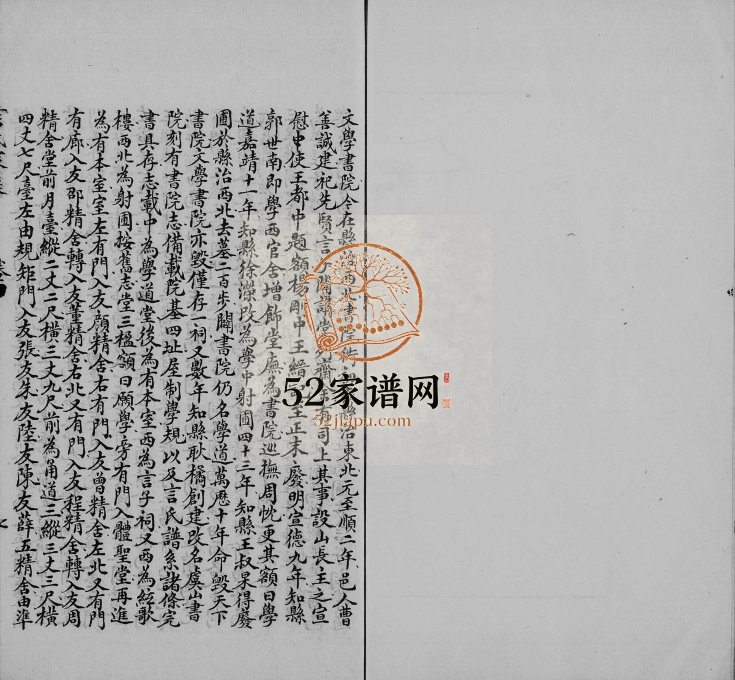 文學書院今在縣治西北書院街初在縣治東北元至順二年邑人曹
善誠建祀先賢言子闢講堂列齋有司上其事設山長王之宣
慰中使王都中題額楊剛中王縉至正末廢明宣德九年知縣
郭世南即學西官舍增飾堂廡為書院巡撫周忱更其額曰學
道嘉靖十一年知縣徐濚改為學中射圃四十三年知縣王叔杲得廢
圃於縣治西北去墓二百步闢書院仍名學道萬歷十年命毀天下
書院文學書院亦毀僅存一祠又數年知縣耿橘創建改名虞山書
院刻有書院志備載院基四址屋制學規以及言氏譜系諸條完
書具存志載中為學道堂後為有本室西為言子祠又西為絃歌
樓西北為射圃按舊志堂三楹額曰願學旁有門入體聖堂再進
為有本室室左有門入友顏精舍右有門入友曾精舍左北又有門
有廊入友邵精舍轉入友董精舍右北又有門入友程精舍轉入友周
精舍堂前月臺縱二丈二尺橫三丈九尺前為甬道三縱三丈三尺橫
四丈七尺臺左由規矩門入友張友朱友陸友陳友薛五精舍由準
52家谱网
52jiapu.com